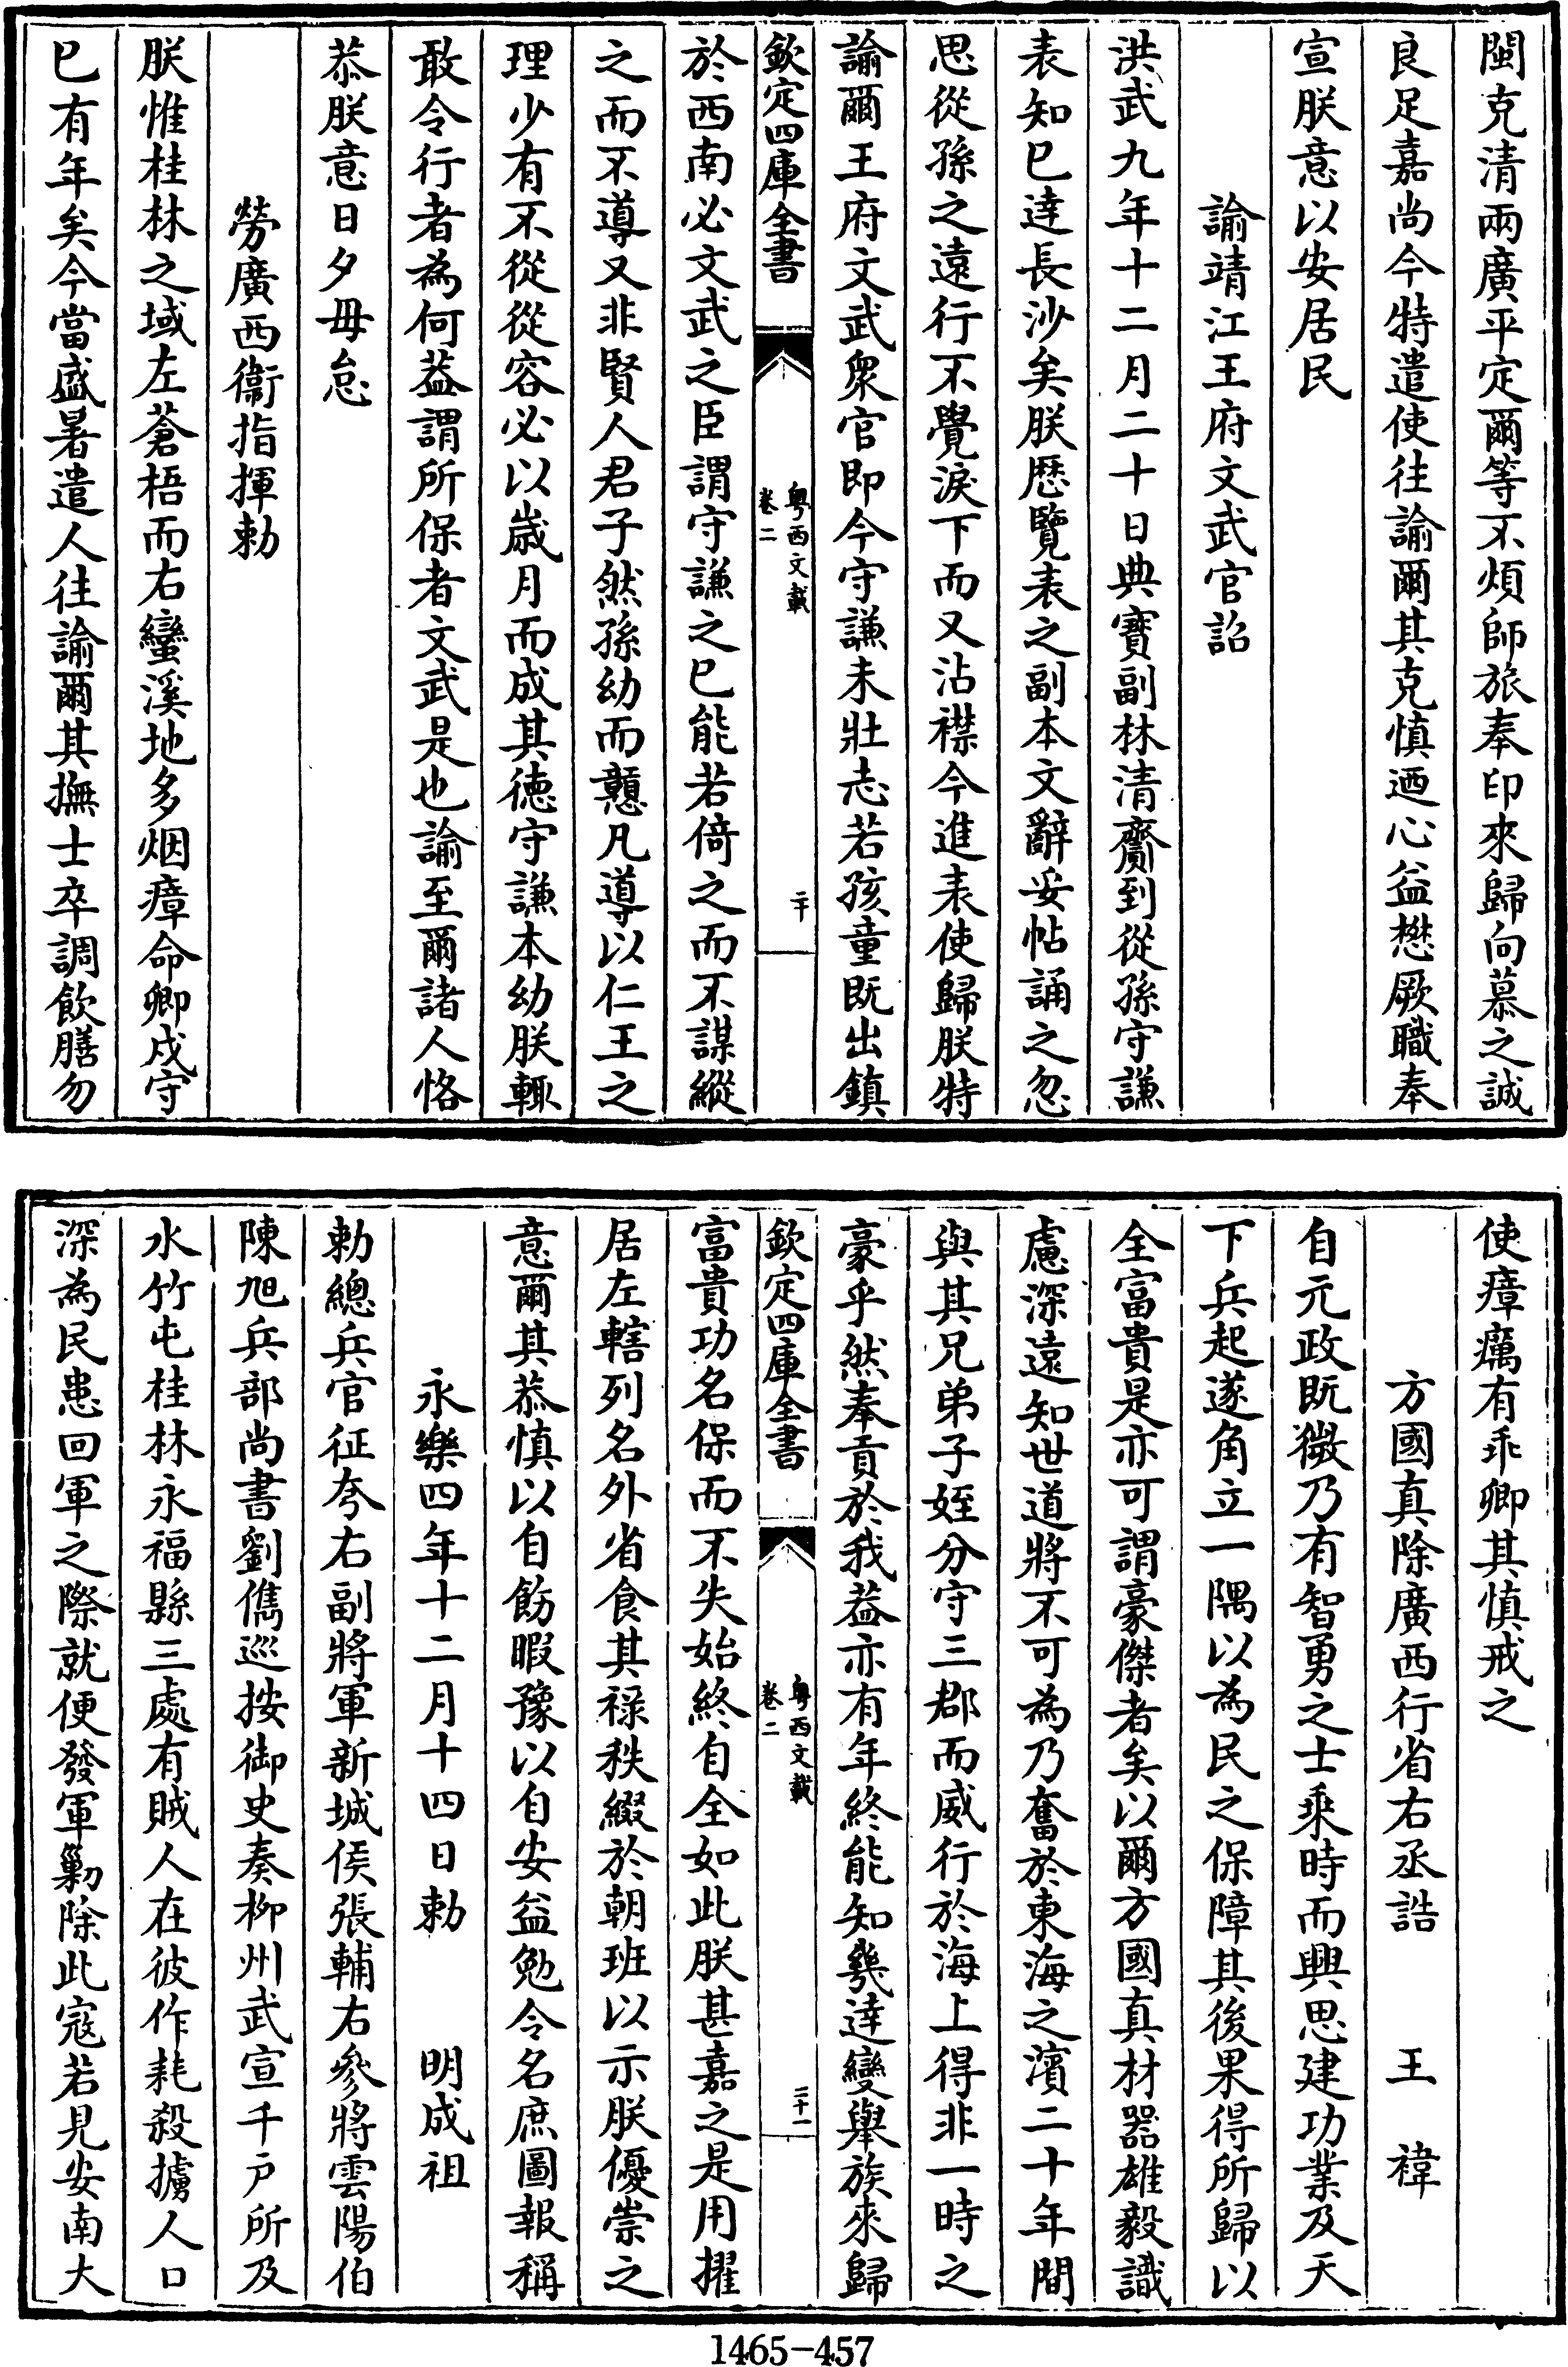 閩克清兩廣平定爾等不煩師旅奉印來歸向慕之誠
良足嘉尚今特遣使往諭爾其克慎廼心益懋厥職奉
宣朕意以安居民
諭靖江王府文武官詔
洪武九年十二月二十日典寶副林清齎到從孫守謙
表知已達長沙矣朕歴覽表之副本文辭妥帖誦之忽
思從孫之遠行不覺淚下而又沾襟今進表使歸朕特
諭爾王府文武衆官即今守謙未壯志若孩童既出鎮
欽定四庫全書
粤西文載
卷二
二十
於西南必文武之臣謂守謙之已能若倚之而不謀縱
之而不導又非賢人君子然孫幼而戅凡導以仁王之
理少有不從從容必以歲月而成其徳守謙本幼朕輒
敢令行者為何葢謂所保者文武是也諭至爾諸人恪
恭朕意日夕毋怠
勞廣西衞指揮勅
朕惟桂林之域左蒼梧而右蠻溪地多烟瘴命卿戍守
已有年矣今當盛暑遣人往諭爾其撫士卒調飲膳勿
使瘴癘有乖卿其慎戒之
方國真除廣西行省右丞誥 王禕
自元政既微乃有智勇之士乘時而興思建功業及天
下兵起遂角立一隅以為民之保障其後果得所歸以
全富貴是亦可謂豪傑者矣以爾方國真材器雄毅識
慮深遠知世道將不可為乃奮於東海之濱二十年間
與其兄弟子姪分守三郡而威行於海上得非一時之
豪乎然奉貢於我葢亦有年終能知幾達變舉族來歸
欽定四庫全書
粤西文載
卷二
二十一
富貴功名保而不失始終自全如此朕甚嘉之是用擢
居左轄列名外省食其禄秩綴於朝班以示朕優崇之
意爾其恭慎以自飭暇豫以自安益勉令名庶圖報稱
永樂四年十二月十四日勅 明成祖
勅總兵官征夸右副將軍新城侯張輔右參將雲陽伯
陳旭兵部尚書劉儁巡按御史奏柳州武宣千户所及
水竹屯桂林永福縣三處有賊人在彼作耗殺擄人口
深為民患回軍之際就便發軍勦除此寇若見安南大
1465-457